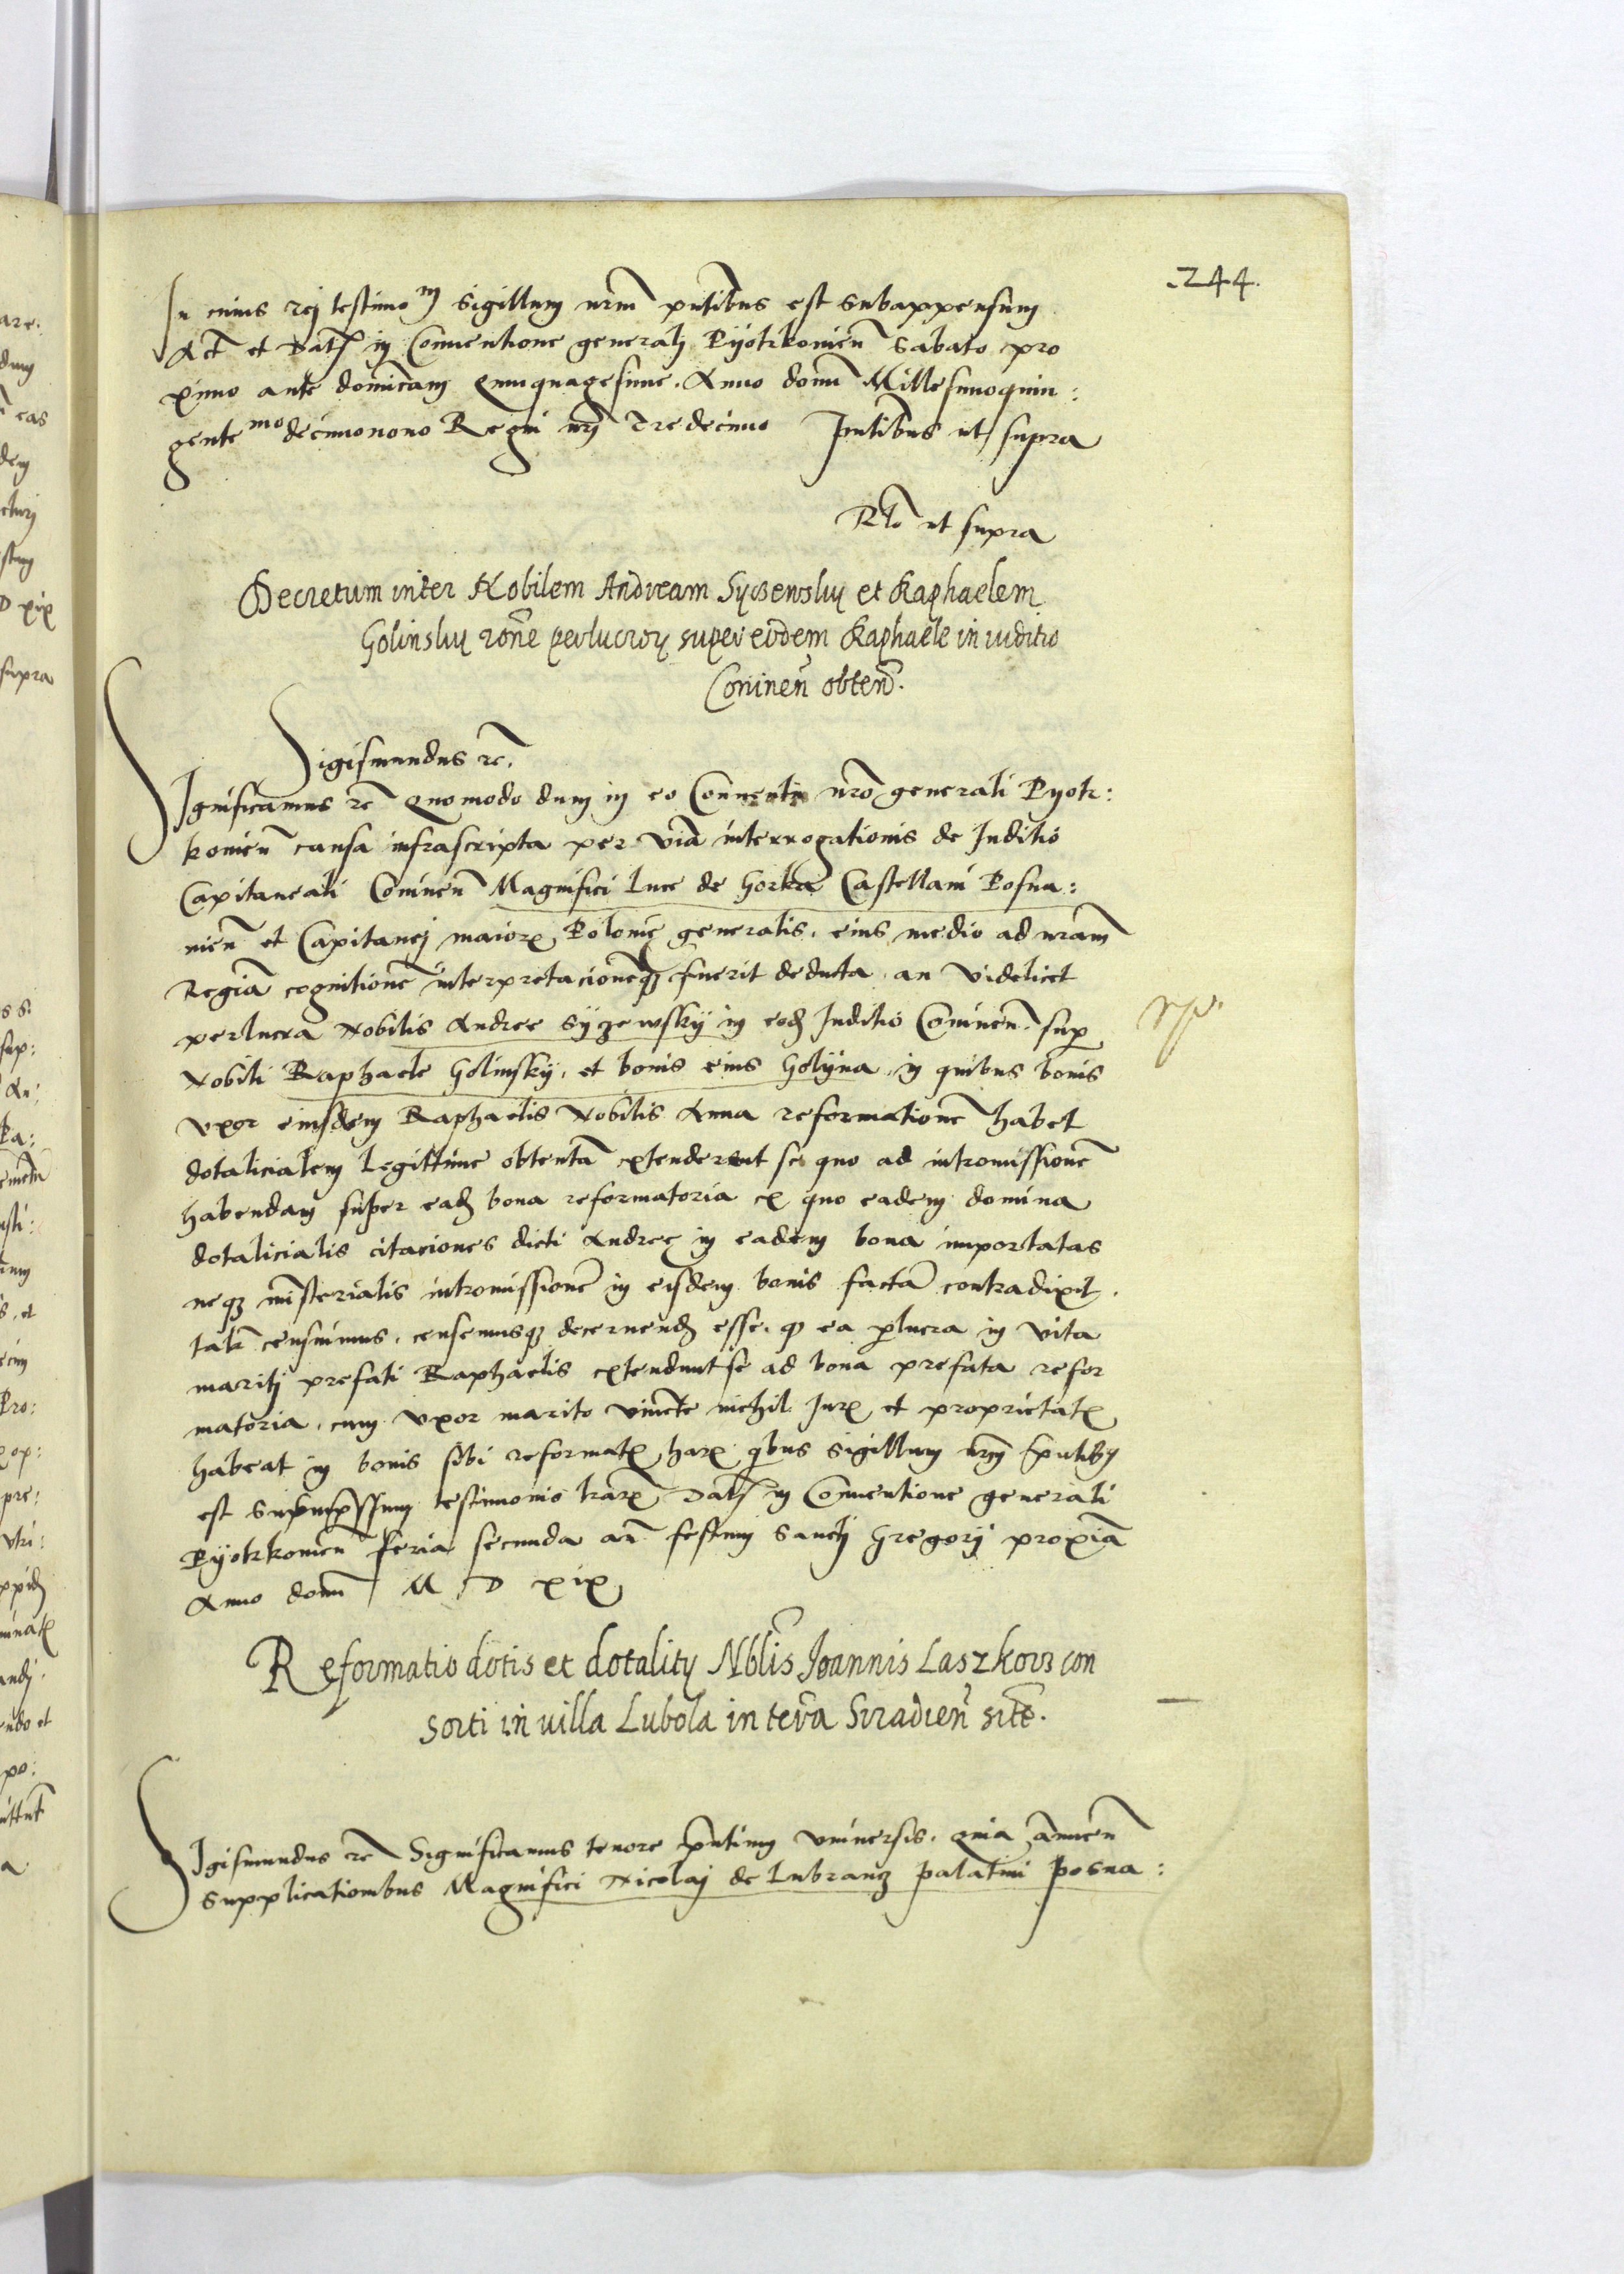 244.
In cuius rej testimom̃ Sigillum nrm̃ pntibus est subappensum
Act̃ et Dat̃ in Conuentione generalj Pyotrkouien̄ Sabato pro
ximo ante dominicam Quinquagesime. Anno domī Millesimoquin:
gentemo decimonono Regni nrj Tredecimo Pntibus ut supra
Rlõ ut supra
Decretum inter Nobilem Andream Sijczewskij et Raphaelem
Golinskij rõne perlucror super eodem Raphaele in iuditio
Coninen̄ obten̄.
Sigismundus rc̃.
Significamus rc̃ Quomodo dum in eo Conuentu nrõ generali Pyotr:
kouien̄ causa infrascripta per viã interrogationis de Juditio
Capitaneali Coninen̄ Magnifici Luce de Gorka Castellani Posna:
nien̄ et Capitanej maioris Polonię generalis, eius medio ad nram̃
Regiã cognitionē interpretacionēq; fuerit deducta, an videlicet
perlucra Nobilis Andree Syczewskij in eod Juditio Coninen̄ sup
Nobili Raphaele Golinskij, et bonis eius Golijna, in quibus bonis
vxor eiusdem Raphaelis Nobilis Anna reformationē habet
dotalicialem legittime obtentã extenderent se quo ad intromissionē
habendam super ead bona reformatoria ex quo eadem domina
dotalicialis citaciones dicti Andreę in eadem bona importatas
neq; mĩsterialis intromissionē in eisdem bonis factã contradixit,
talr̃ censuimus, censemusq; decernend esse, q ea plucra in vita
maritj prefati Raphaelis extendunt se ad bona prefata refor
matoria, cum vxor marito viuente nichil Juris et proprietatis
habeat in bonis sibi reformatis, harum qbus Sigillum nrm̃ pntibus
est subimpssum testimonio lrarum Dat̃ in Conuentione generali
Pyotrkouien̄ feria secunda an̄ festum Sanctj Gregorij proximã
Anno domī M D xix
Reformatio dotis et dotalitij Nblis Joannis Laszkow con
sorti in uilla Lubola in terra Siradien̄ sitẽ.
Sigismundus rc̃ Significamus tenore pntium vniuersis, Quia ãnuen̄
supplicationibus Magnifici Nicolaj de Lubrancz palatini posna: